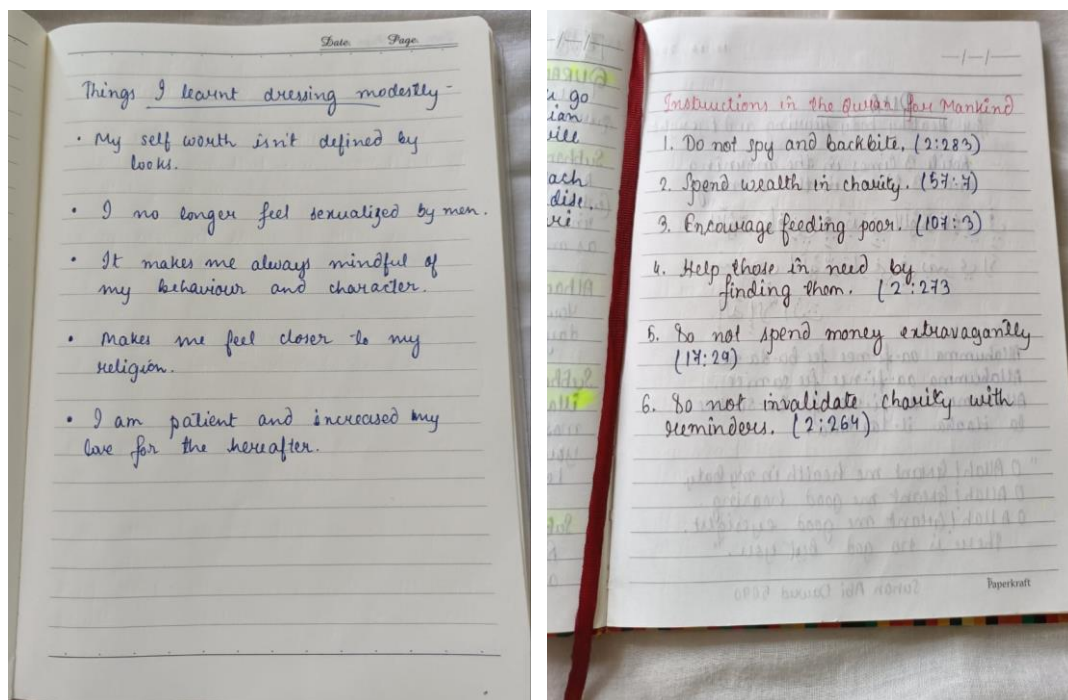 Date. Page.
Things I learnt dressing modestly -
• My self worth isn't defined by
looks.
• I no longer feel sexualized by men.
• It makes me always mindful of
my behaviour and character.
• Makes me feel closer to my
religion.
• I am patient and increased my
love for the hereafter.
go
ach
dise.
—/—/—
Instructions in the Quran for Mankind
1. Do not spy and backbite. (2:283)
2. Spend wealth in charity. (57:7)
3. Encourage feeding poor. (107:3)
4. Help those in need by
finding them. (2:273
5. Do not spend money extravagantly
(17:29)
6. Do not invalidate charity with
reminders. (2:264)
Paperkraft